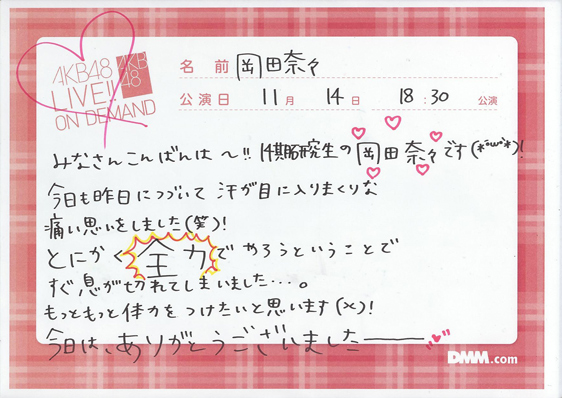 AKB48
LIVE!!
ON DEMAND
AKB
48
名 前 岡田奈々
公演日 11月 14日 18:30 公演
みなさんこんばんは〜!! 14期研究生の岡田奈々です(*°ω°*)!
今日も昨日につづいて 汗が目に入りまくりな
痛い思いをしました(笑)!
とにかく全力でやろうということで
すぐ息が切れてしまいました…。
もっともっと体力をつけたいと思います(>_<)!
今日は、ありがとうございました――
DMM.com